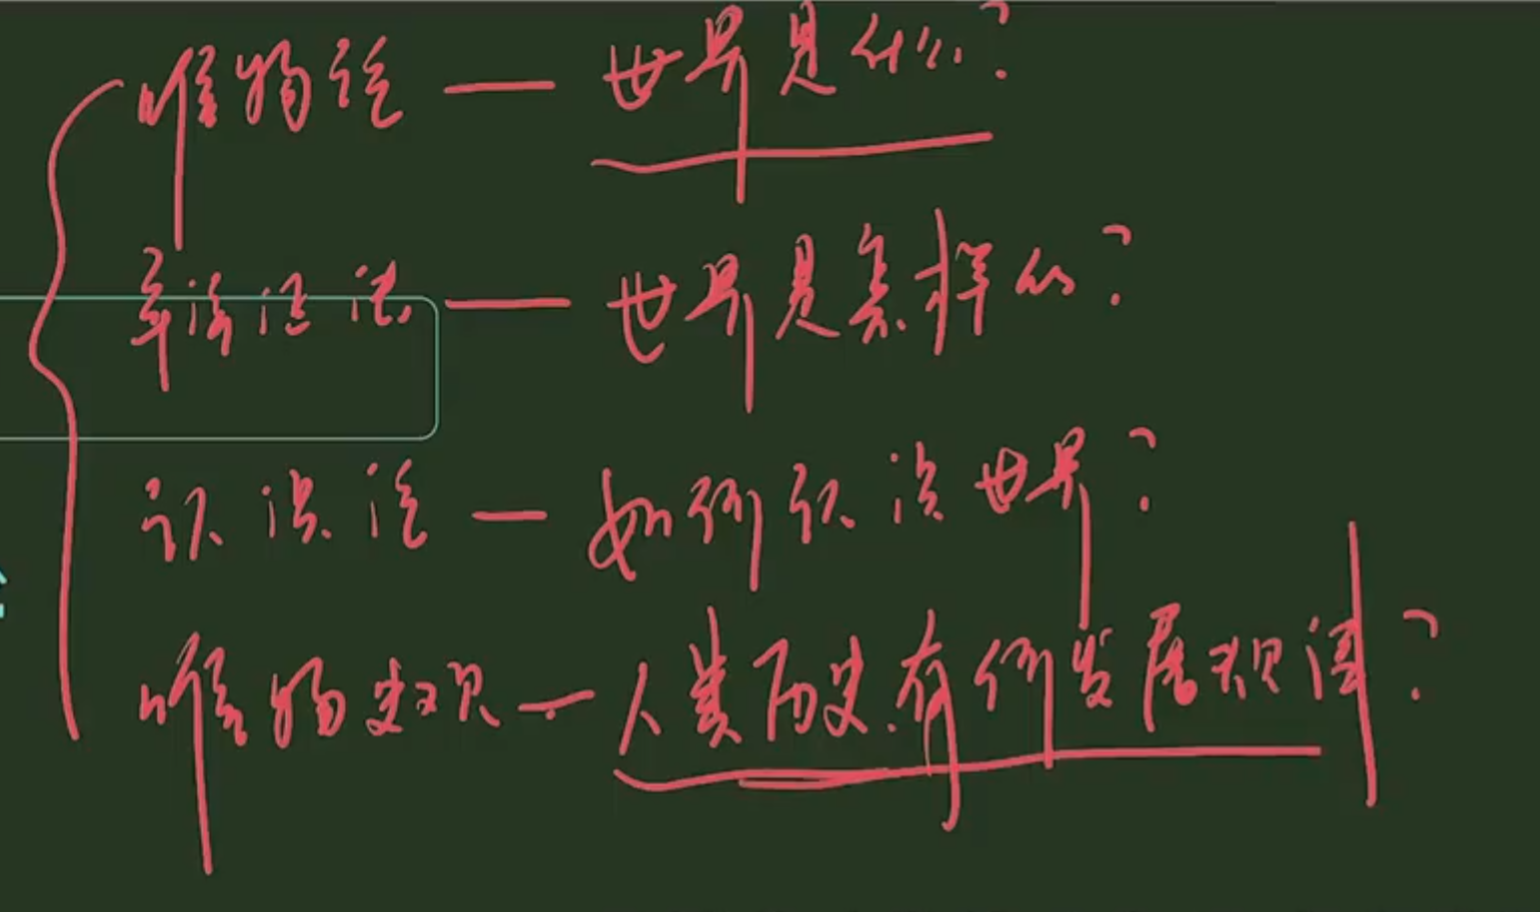 唯物论 — 世界是什么?
辩证法 — 世界是怎样的?
认识论 — 如何认识世界?
唯物史观 — 人类历史有何发展规律?